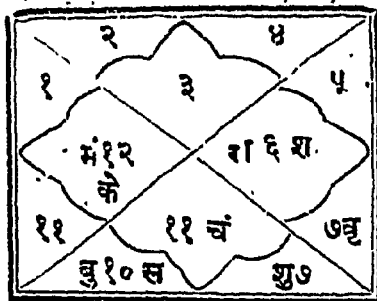 २ ४
१ ३ ५
मं१२ रा ६ श.
के
११ ११ चं ७वृ
बु१० स शु७